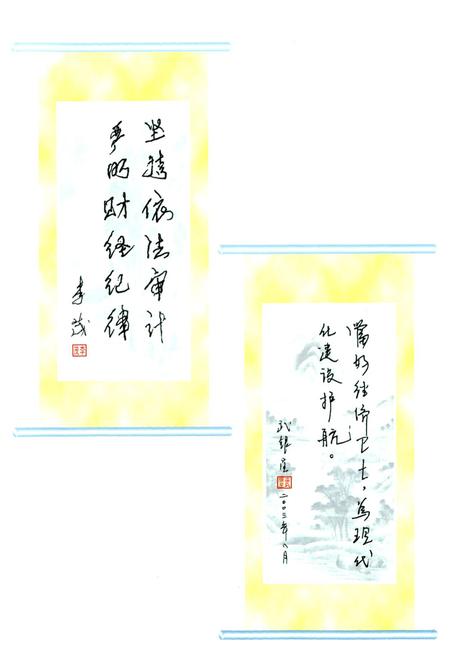 坚持依法审计
严明财经纪律
李茂
当好经济卫士，为现代
化建设护航。
二〇〇三年八月